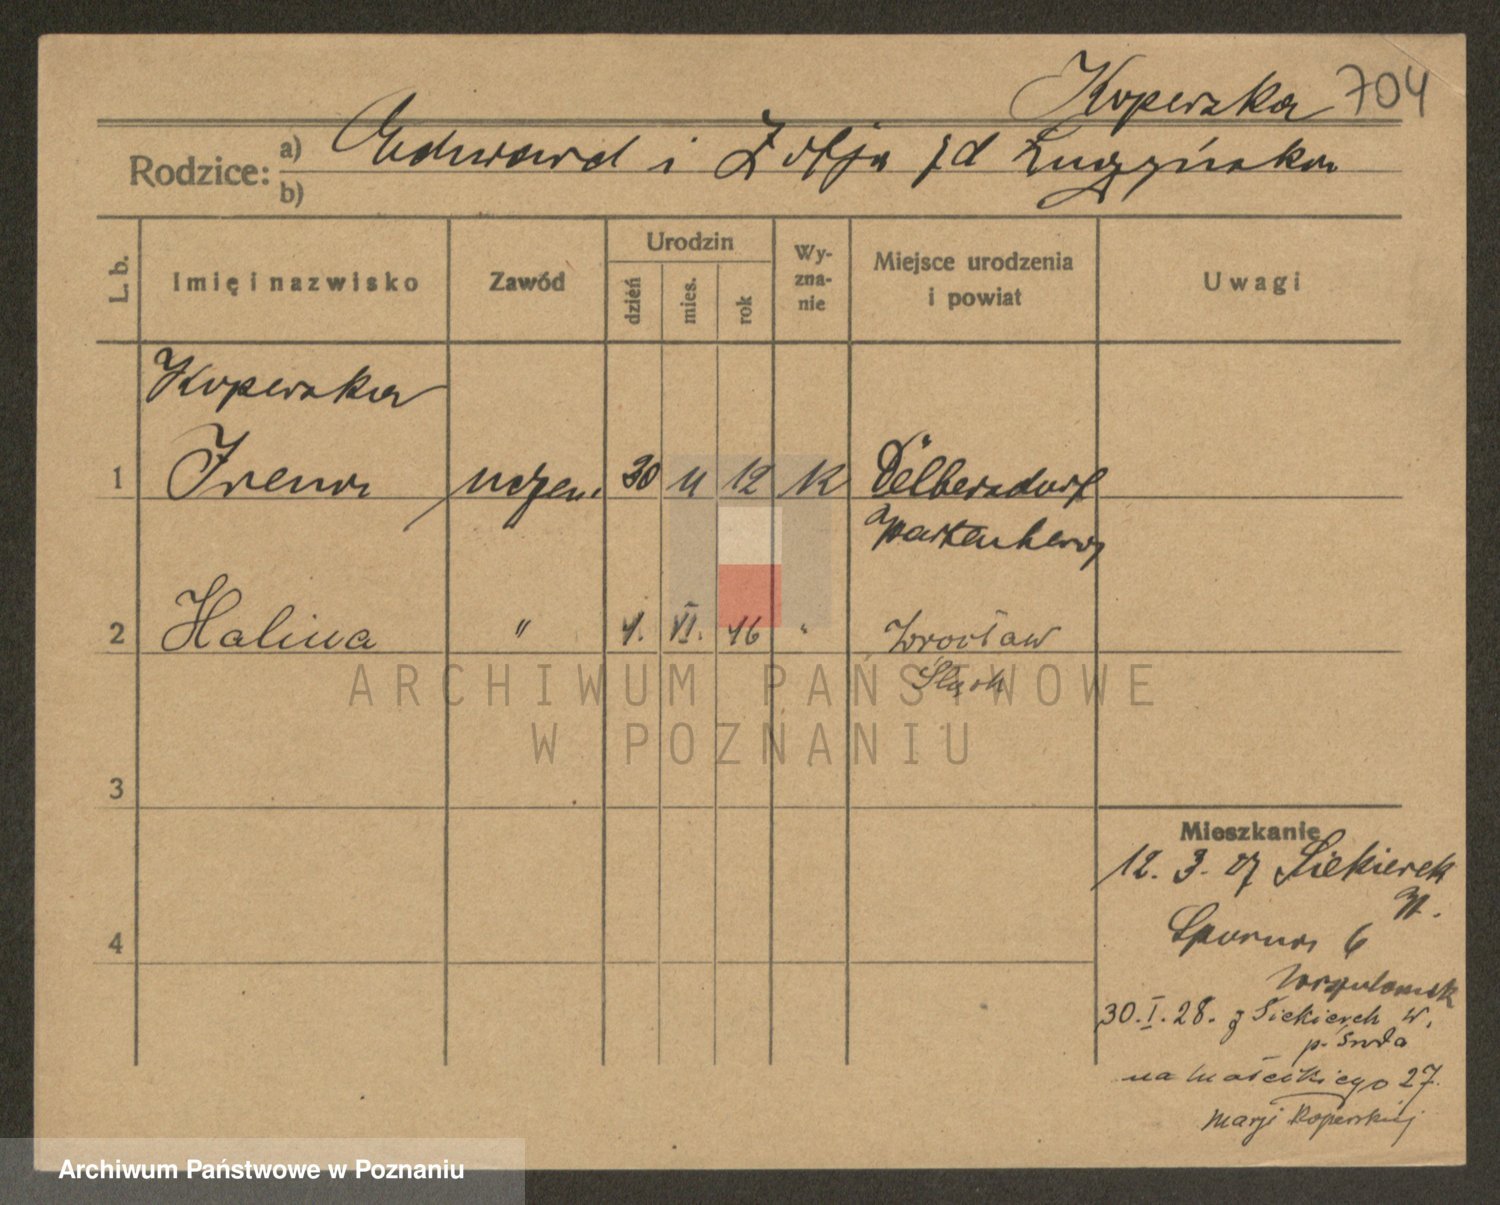 Koperska 704
Rodzice: a) Edward i Zofja zd Łuczyńska
b)
L. b.
Imię i nazwisko
Zawód
Urodzin
dzień
mies.
rok
Wy-
zna-
nie
Miejsce urodzenia
i powiat
Uwagi
Koperska
1 Irena uczen. 30 11 12 k Dělbersdorf
Wartenberg
2 Halina " 4. VI. 16 " Wrocław
Śląsk
ARCHIWUM PAŃSTWOWE
W POZNANIU
3
4
Mieszkanie
12. 3. 27 Siekierek
W.
6
30. I. 28. z Siekierek W.
p. Środa
na Mościckiego 27.
Marji Koperskiej
Archiwum Państwowe w Poznaniu